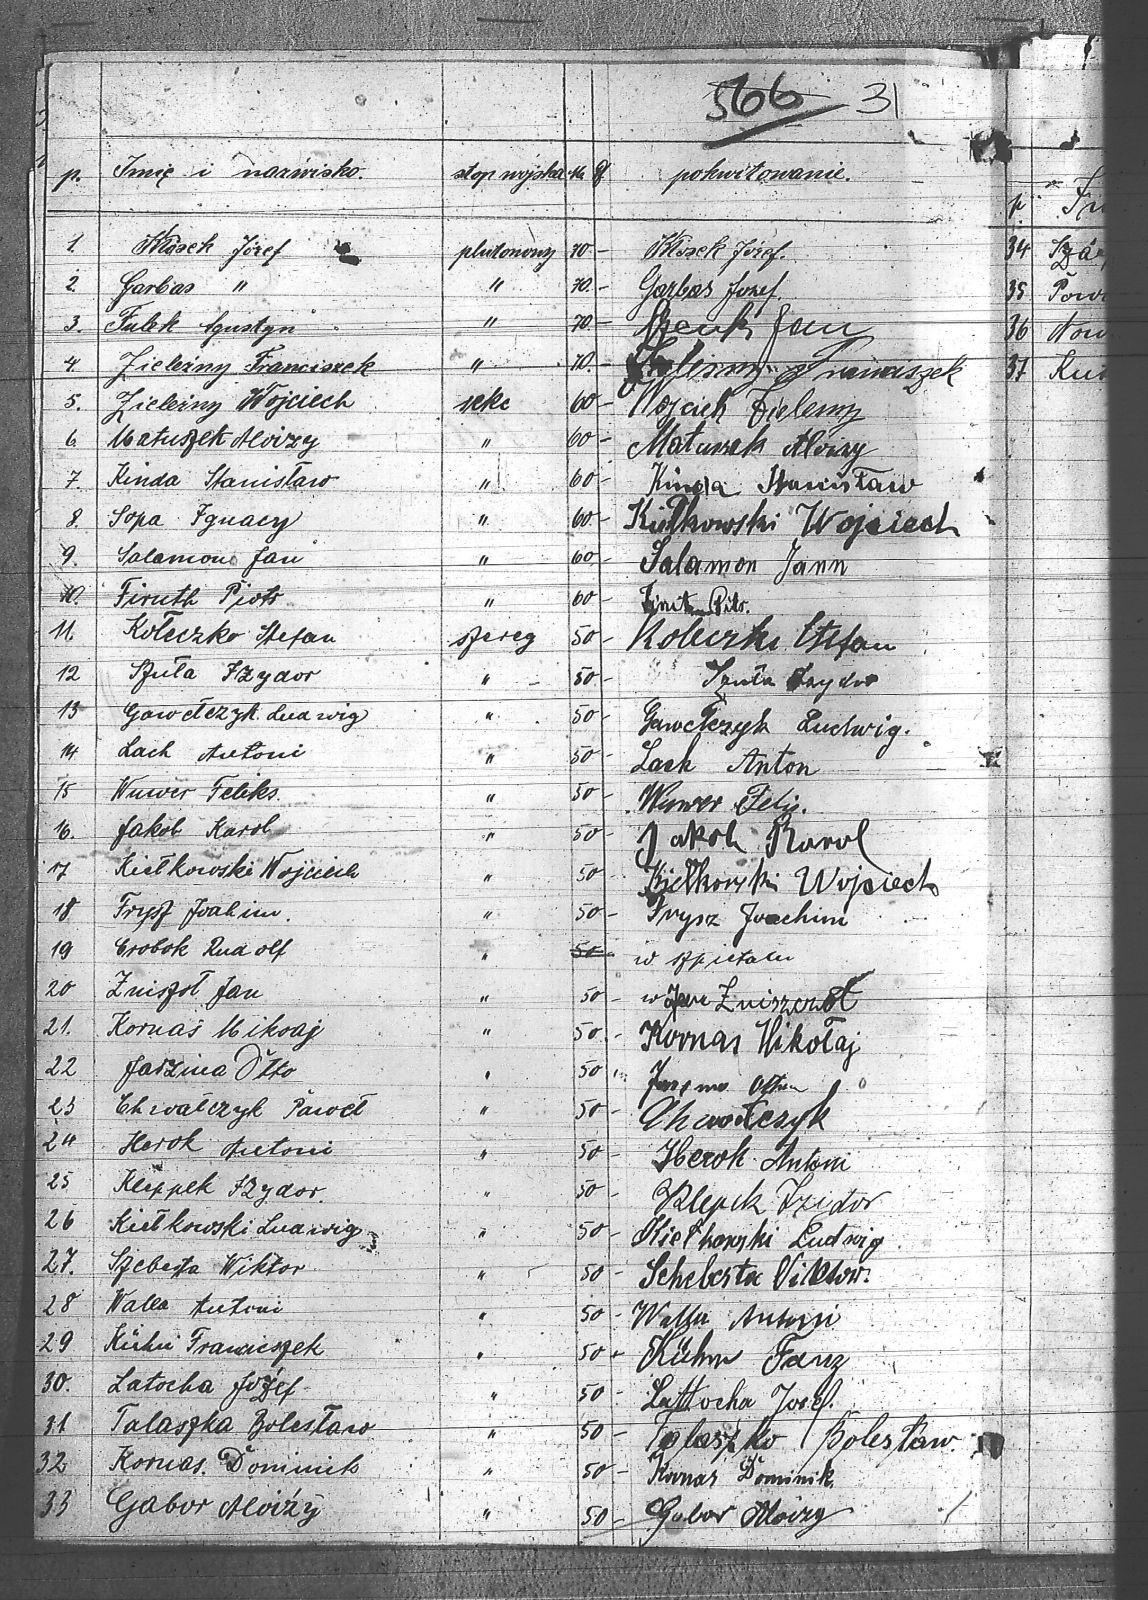 566 31
p. Imię i nazwisko. stop wojska M f. pokwitowanie.
1 Kłosek Józef plutonowy 70.- Kłosek Józef.
2. Garbas " " 70.- Garbas Józef.
3. Fulek Agustyn " 70.- Jan
4. Zieleźny Franciszek " 70.- Franciszek
5. Zieleźny Wojciech sekc 60- Wojciech Zielezny
6. Matuszek Alojzy " 60- Matuszek Alojzy
7. Kinda Stanisław " 60- Kinda Stanisław
8. Sopa Ignacy " 60- Kiełkowski Wojciech
9. Salamon Jan " 60. Salamon Jann
10. Firuth Piotr " 60-
11. Kołeczko Stefan szereg 50- Stefan
12 Szuła Izydor " 50- Szuła Izydor
13 Gawełczyk Ludwig " 50- Gawełczyk Ludwig.
14 Lach Antoni " 50- Lach Anton
15 Wuwer Feliks. " 50- Wuwer Felix.
16. Jakob Karol " 50- Jakob Karol
17 Kiełkowski Wojciech " 50- Kiełkowski Wojciech
18 Frysz Joahim. " 50- Frysz Joachim
19 Crobok Rudolf " 50- w szpitalu
20 Zniszoł Jan " 50-
21. Kornaś Mikoaj " 50- Kornas Mikołaj
22 Jarzina Otto " 50
23 Chwałczyk Paweł " 50- Chwołczyk
24 Herok Antoni " 50- Herok Antoni
25 Kleppek Izydor. " 50- Klepek Izidor
26 Kiełkowski Ludwig " 50- Kiełkowski Ludwig
27. Szebesta Wiktor " 50- Schebesta Viktor.
28 Walla Antoni " 50- Walla Antoni
29 Kühn Franciszek " 50- Kühn Franz
30. Latocha Józef " 50- Lattocha Josef.
31 Talaszka Bolesław " 50- Bolesław.
32 Kornas. Dominik " 50- Kornas Dominik.
33 Gabor Alojzy " 50- Gabor Alojzy
p
34
35
36
37